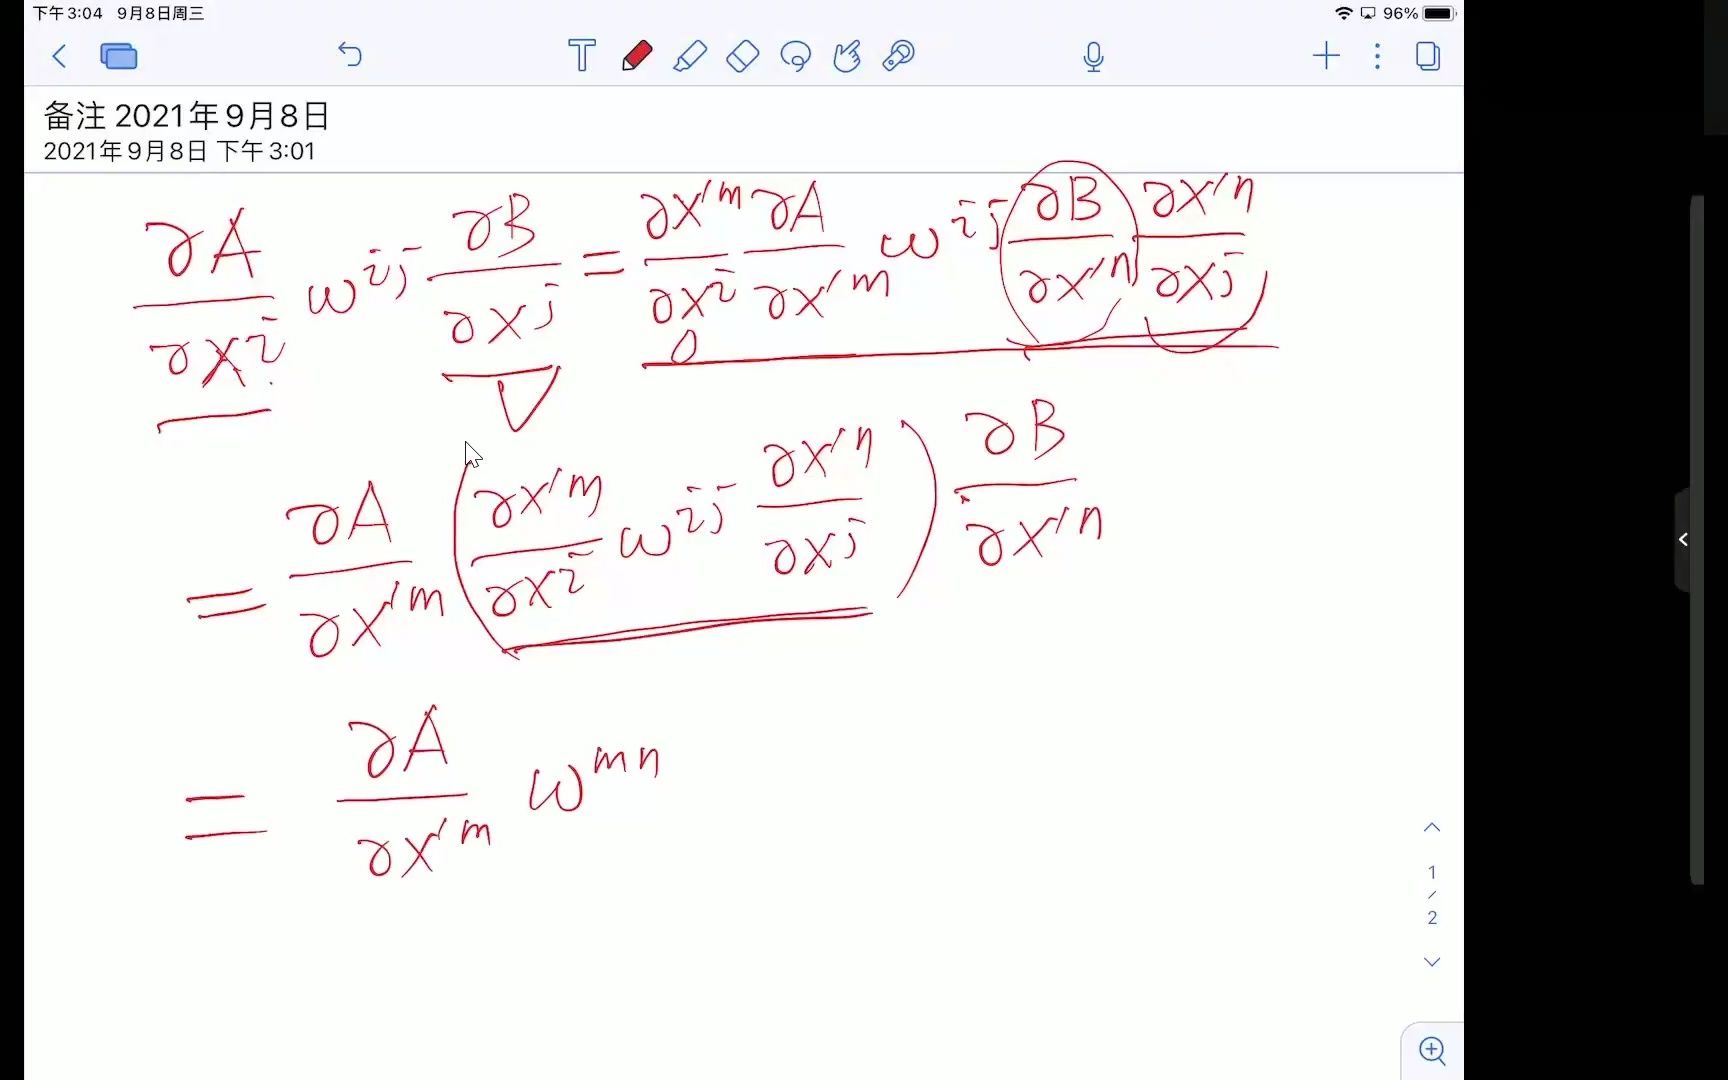 下午3:04 9月8日周三 96%
T
备注 2021年9月8日
2021年9月8日 下午3:01
∂A/∂x^i ω^{ij} ∂B/∂x^j = ∂x'^m/∂x^i ∂A/∂x'^m ω^{ij} ∂B/∂x'^n ∂x'^n/∂x^j
= ∂A/∂x'^m (∂x'^m/∂x^i ω^{ij} ∂x'^n/∂x^j) ∂B/∂x'^n
= ∂A/∂x'^m ω^{mn}
1
/
2